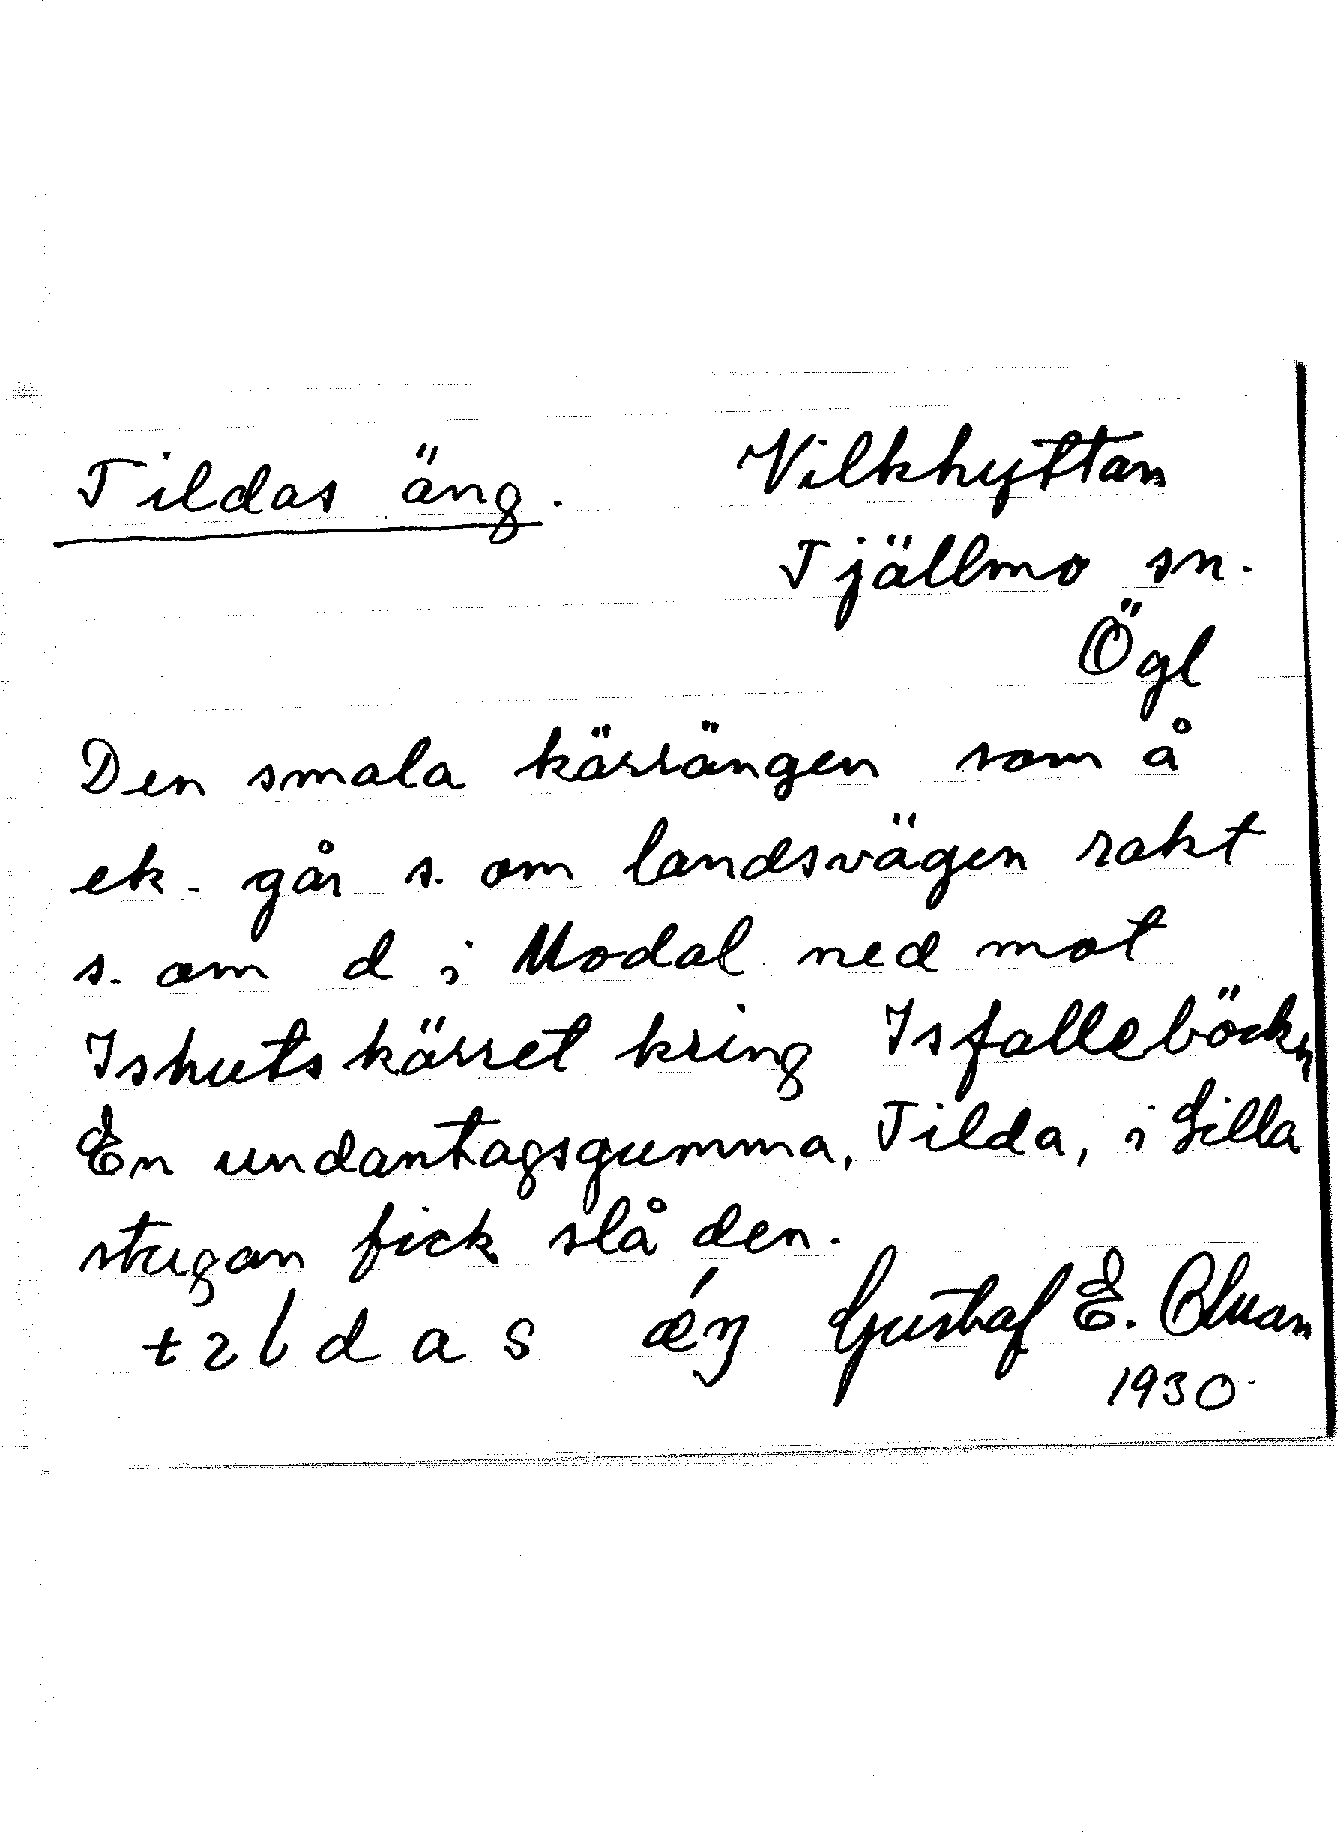 Tildas äng.
Vilkhyttan
Tjällmo sn.
Ögl
Den smala kärrängen som å
ek. går s. om landsvägen rakt
s. om d i Modal ned mot
Ishutskärret kring Isfallebäcken
En undantagsgumma, Tilda, i Lilla
stugan fick slå den.
tɩldas ǽŋ Gustaf E.
1930